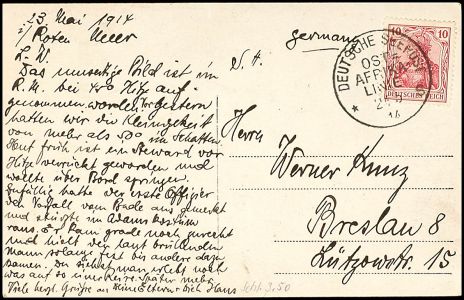 23. Mai 1914
i/ Roten Meer
L. W.
Das umseitige Bild ist im
R. M. bei 40° Hitze auf-
genommen worden. Vorgestern
hatten wir die Kleinigkeit
von mehr als 50° im Schatten.
Heut früh ist ein Steward vor
Hitze verrückt geworden und
wollte über Bord springen.
Zufällig hatte der erste Offizier
den Vorfall vom Bade aus gemerkt
und stürzte im Adamskostüm
raus. Er kam grade noch zurecht
und hielt den laut brüllenden
Mann solange fest bis andere dazu
kamen. Du siehst, man erlebt noch
was auf so einer Reise. Später mehr
Viele herzl. Grüße an Deine Eltern u. Dich Hans
germany
DEUTSCHE SEEPOST
OST-
AFRIKA
LINIE
10
DEUTSCHES REICH
Herrn
Werner Kunz
Breslau 8
Lützowstr. 15
3,50